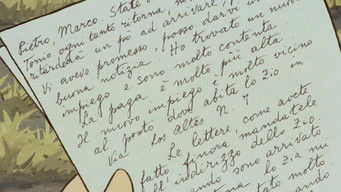 Pietro, Marco. State
Tonio ogni tanto ritorna,
ritarderà un pò ad arrivare,
Vi avevo promesso, posso darvi
buona notizia. Ho trovato un nuovo
impiego e sono molto contenta
La paga è molto più alta.
Il nuovo impiego è molto vicino
al porto dove abita lo Zio in
Via Los Altes N. 7
Le lettere, come avete
fatto finora, mandatele
all'indirizzo dello Zio.
sono arrivato
molto